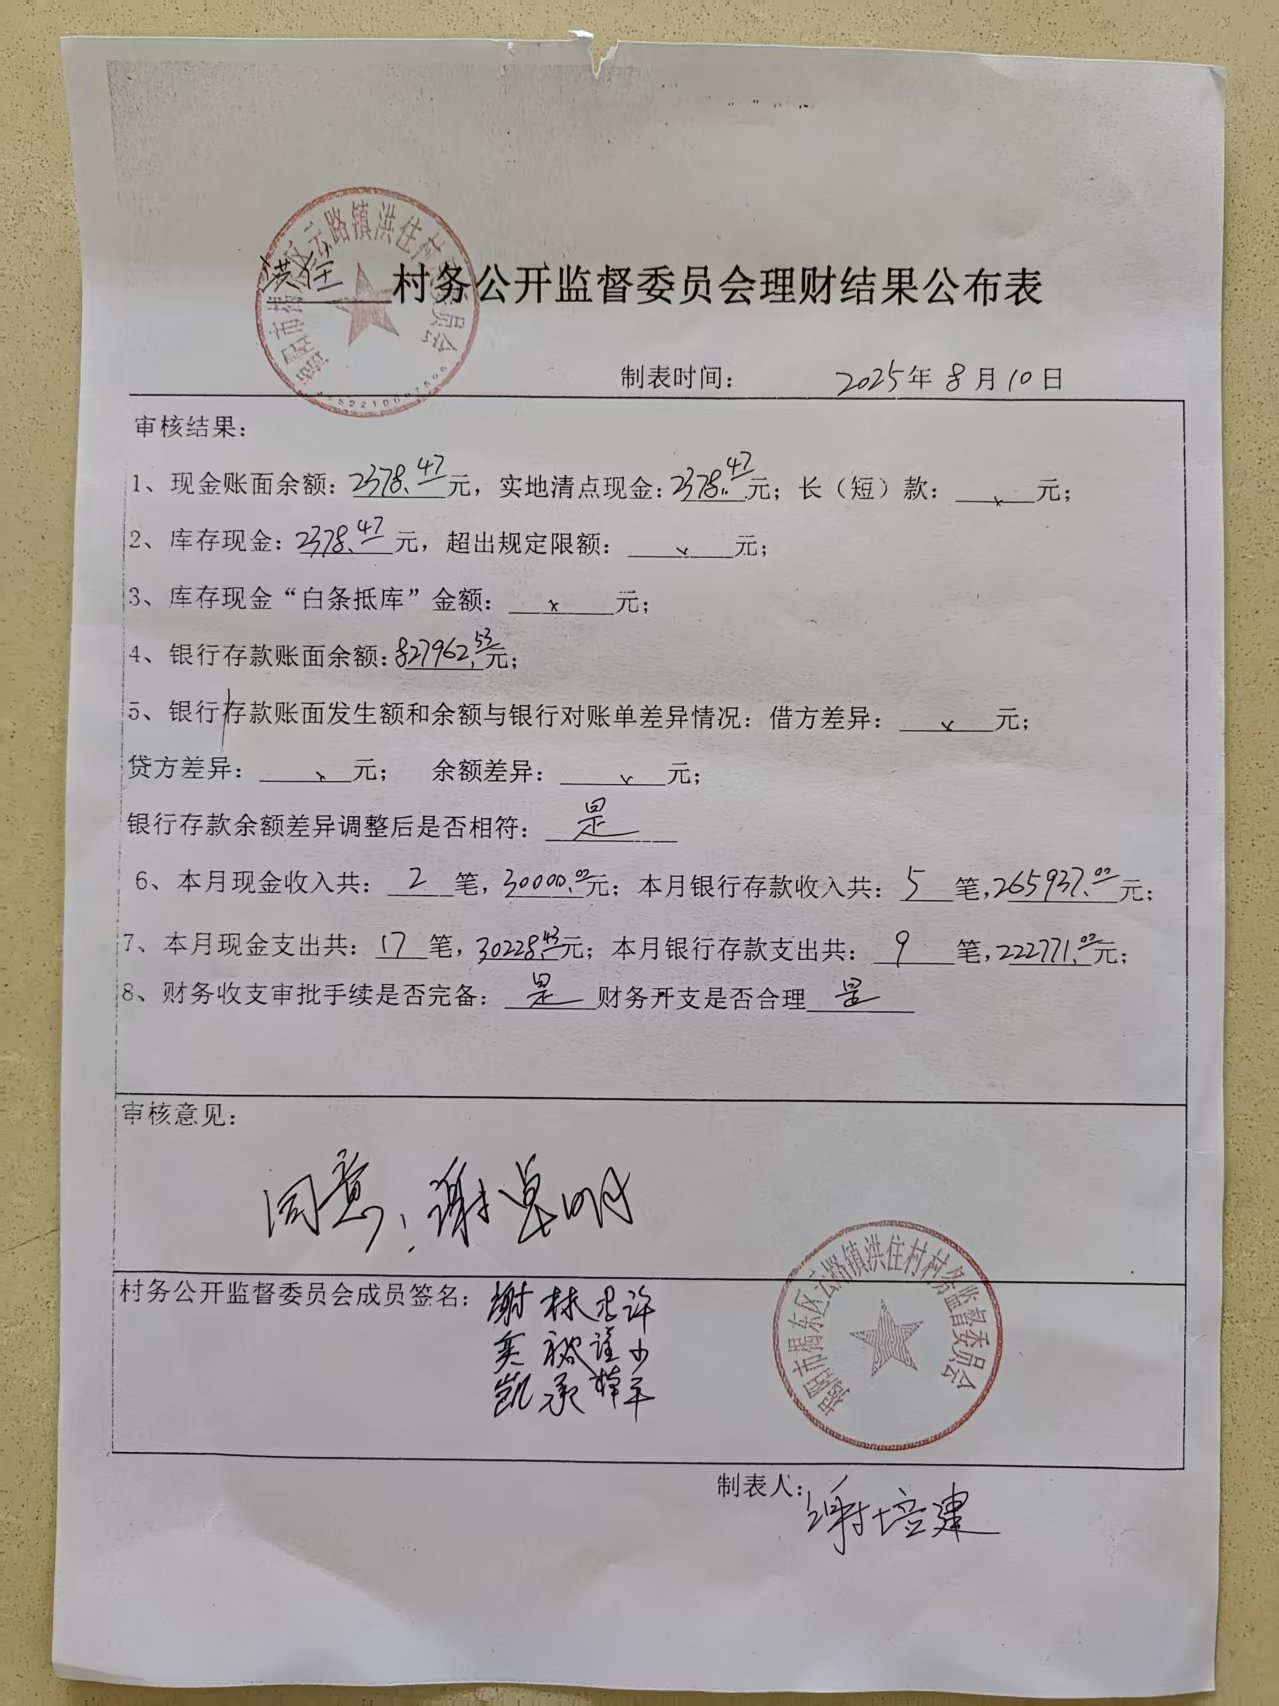 揭阳市揭东区云路镇洪住村村民委员会
洪住村务公开监督委员会理财结果公布表
制表时间： 2025年8月10日
审核结果：
1、现金账面余额：2378.47元，实地清点现金：2378.47元；长（短）款：x元；
2、库存现金：2378.47元，超出规定限额：x元；
3、库存现金“白条抵库”金额：x元；
4、银行存款账面余额：827962.53元；
5、银行存款账面发生额和余额与银行对账单差异情况：借方差异：x元；
贷方差异：x元； 余额差异：x元；
银行存款余额差异调整后是否相符：是
6、本月现金收入共：2笔，30000.00元；本月银行存款收入共：5笔，265937.00元；
7、本月现金支出共：17笔，30228.43元；本月银行存款支出共：9笔，222771.00元；
8、财务收支审批手续是否完备：是 财务开支是否合理是
审核意见：
同意，谢卓明
村务公开监督委员会成员签名：
谢奕凯 林 承 许少平
揭阳市揭东区云路镇洪住村村务监督委员会
制表人：谢培建